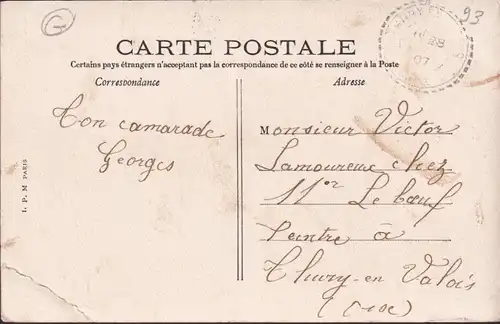 93
CARTE POSTALE
Certains pays étrangers n'acceptant pas la correspondance de ce côté se renseigner à la Poste
Correspondance
Adresse
Ton camarade
Georges
Monsieur Victor
Lamoureux chez
Mor Le bœuf
Peintre à
Thury-en Valois
(Oise)
I. P. M PARIS
07